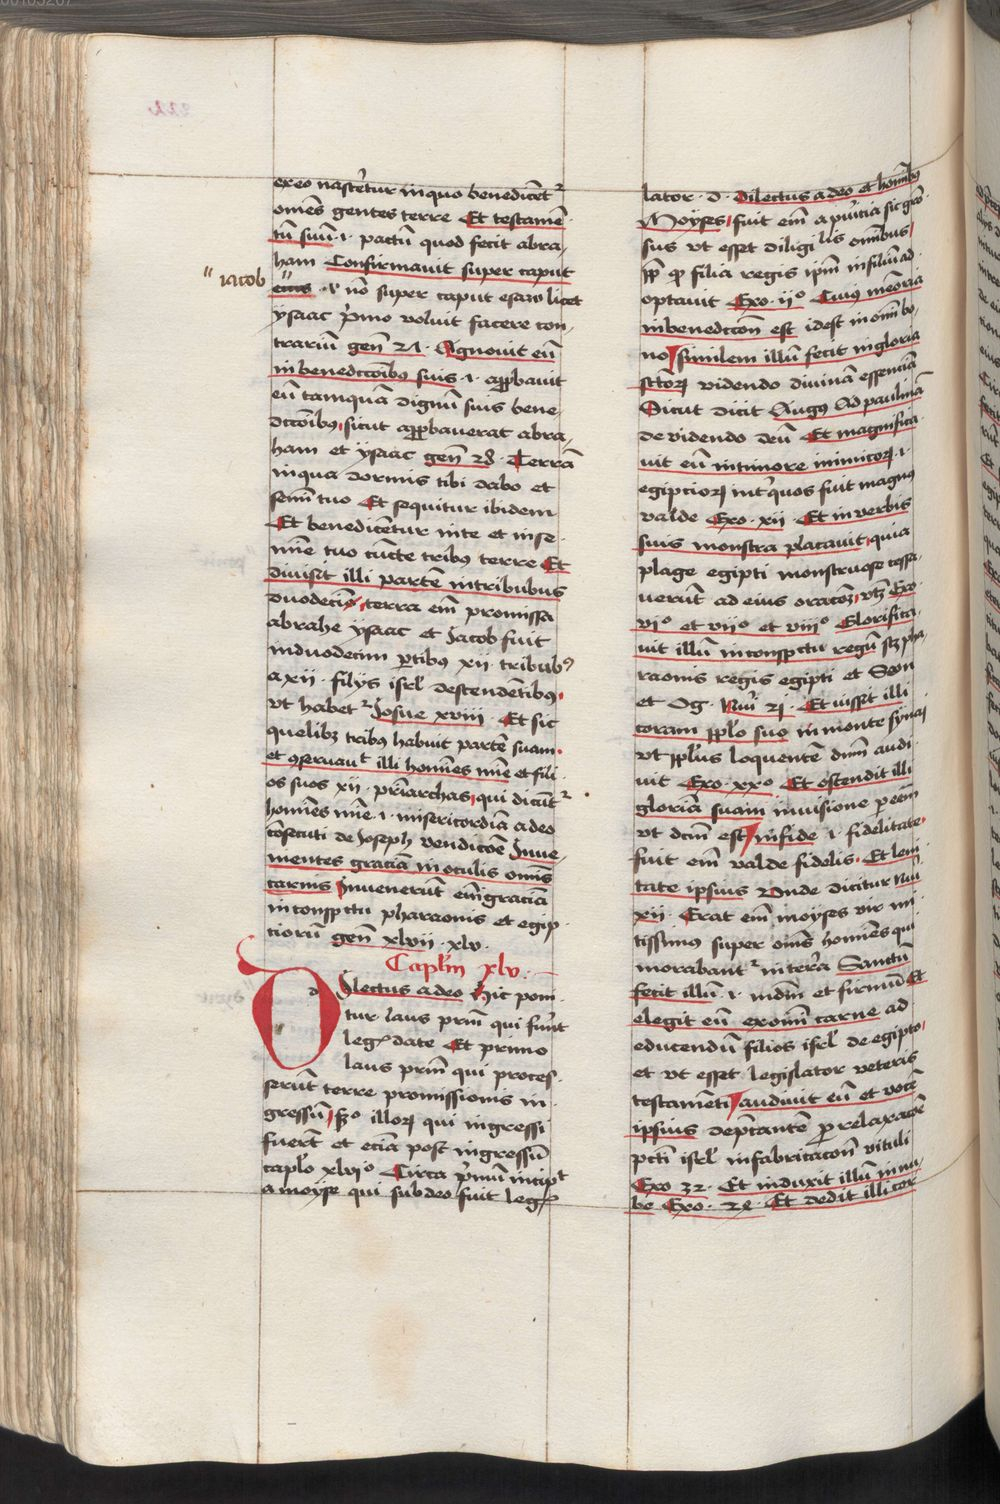 exeo nascetur inquo benedicent
omes gentes terre Et testamen
tu suu .i. pactu quod fecit abra
ham Confirmavit super caput
iacob
eius .i. no super caput esaw licet
ysaac primo voluit facere con
trariu gen 27 . Agnouit eu
in benedctoibus suis .i. approbauit
eu tamqua dignu suis bene
dctoibus sicut approbauerat abra
ham et ysaac gen 28 . Terra
inqua dormis tibi dabo et
semi tuo Et sequitur ibidem
Et benedicetur inte et inse
mie tuo cuncte tribus terre Et
diuisit illi parte intribubus
duodecim terra em promissa
abrahe ysaac et Jacob fuit
induodecim partibus xii . tribubus
a xii . filijs isrl descendetibus
vt habetur Josue xviii . Et sic
quelibet tribus habuit parte suam
et conseruauit illi homies mie et fili
os suos xii . priarchas qui dicuntur
homies mie .i. misericordia a deo
cosecuti de Joseph vendicoe Inue
nientes gracia in oculis omis
carnis Inuenerut em gracia
in conspectu pharaonis et egip
tioru gen xlvii . xlv .
Caplm xlv .
Dilectus a deo Hic poni
tur laus prm qui funt
leg date Et primo
laus prm qui proces
serut terre promissionis in
gressu Secundo illorum qui ingressi
fuert et eciam post ingressu
caplo xlvio Circa primu incipit
a moyse qui sub deo fuit legis
lator . d . Dilectus a deo et homibus
Moyses fuit em a puericia sic gracio
sus vt esset diligi lis omibus
propter quod filia regis ipm in filiu ad
optauit Exo . iio Cuius meoria
in benedctoe est idest in omi bo
no similem illu fecit in gloria
sctorum videndo diuina essencia
Sicut dicit Augus Ad paulina
de videndo deu Et magnifica
uit eu in timore inimicorum .i.
egiptiorum inter quos fuit magnus
valde Exo . xii Et in verbis
suis monstra placauit quia
plage egipti monstruose cessa
uerut ad eius oracoem vt Exo
vio et viio et viiio Glorifica
uit illu in conspectu regu scilicet pha
raonis regis egipti et Seon
et Og . Nui 21 . Et iussit illi
coram pplo suo in monte synai
vt pplus loquente dnm audi
uit Exo . xxo Et ostendit illi
gloria suam in visione per em
vt dcm est in fide .i. fidelitate
fuit em valde fidelis . Et leni
tate ipsius Vnde dicitur Nui
xii . Erat em moyses vir mi
tissimus super omes homies qui
morabantur in terra Sanctu
fecit illu .i. mdm et firmu Et
elegit eu ex omi carne ad
educendu filios isrl de egipto
et vt esset legislator veteris
testameti audiuit eu et voce
ipsius deprecante pro relaxacoe
pcti isrl in fabricacoe vituli
Exo 32 . Et induxit illu in nu
be Exo . 24 . Et dedit illi cor